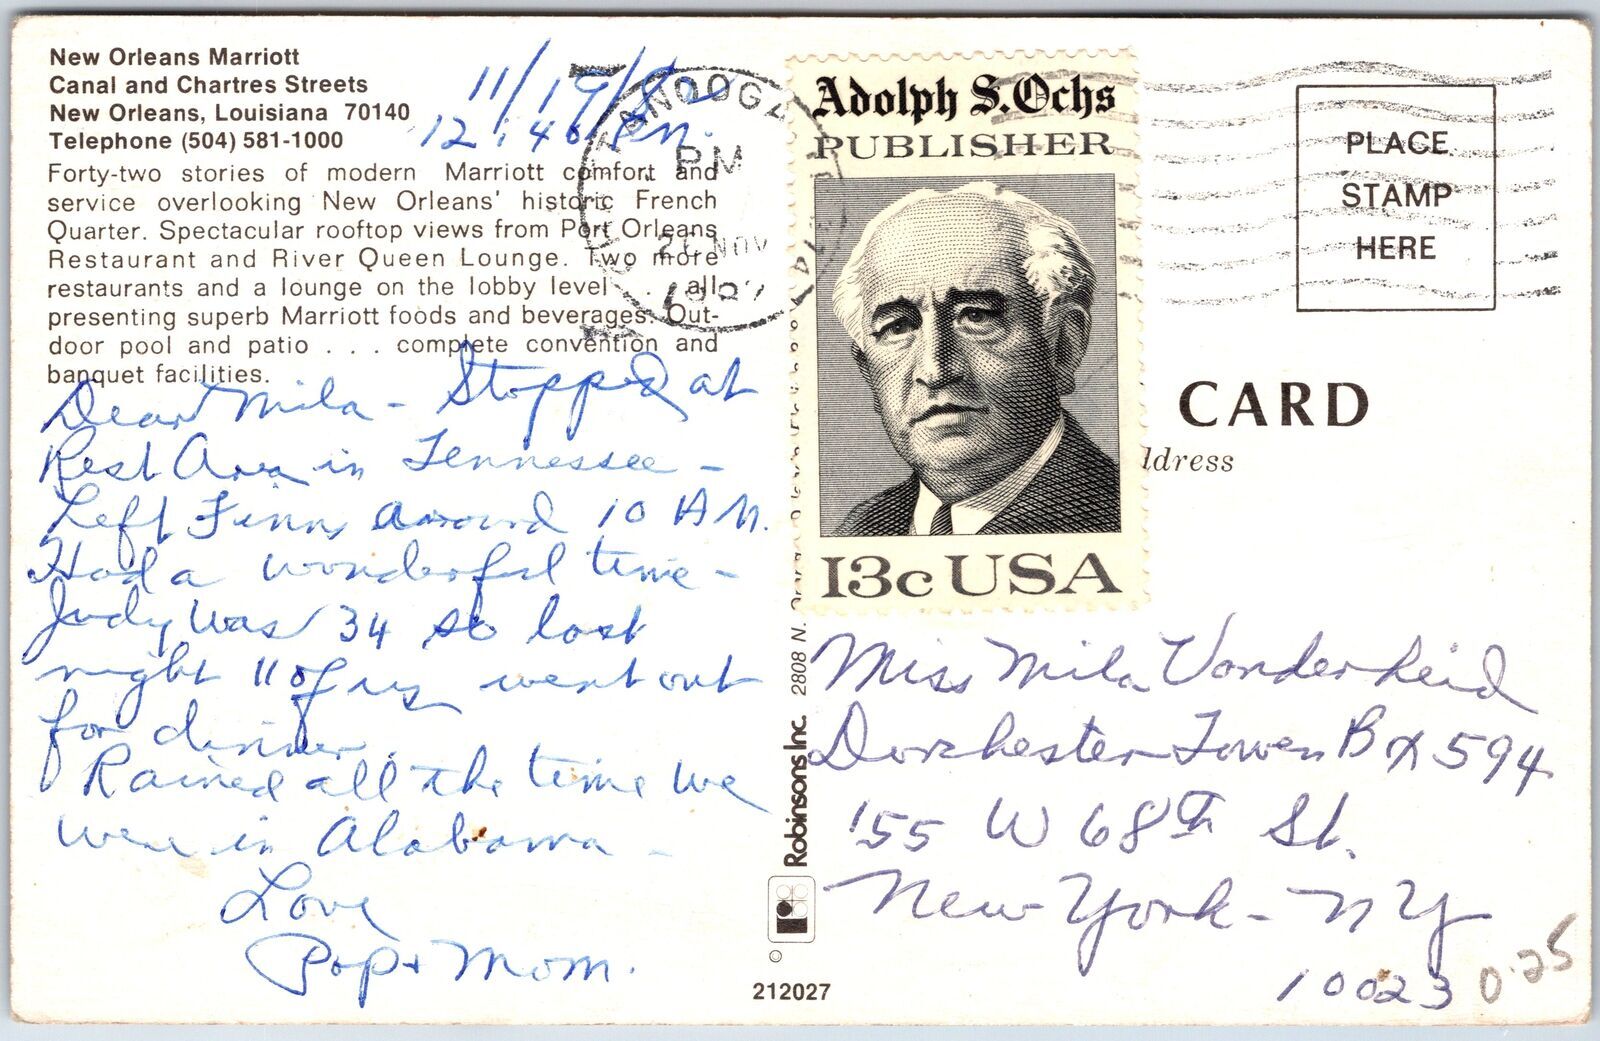 New Orleans Marriott
Canal and Chartres Streets
New Orleans, Louisiana 70140
Telephone (504) 581-1000
11/19/82
12:40 P.M.
Forty-two stories of modern Marriott comfort and
service overlooking New Orleans' historic French
Quarter. Spectacular rooftop views from Port Orleans
Restaurant and River Queen Lounge. Two more
restaurants and a lounge on the lobby level . . . all
presenting superb Marriott foods and beverages. Out-
door pool and patio . . . complete convention and
banquet facilities.
Dear Mila - Stopped at
Rest Area in Tennessee -
Left Finns around 10 AM.
Had a wonderful time -
Judy was 34 so last
night 11 of us went out
for dinner.
Rained all the time we
were in Alabama -
Love
Pop + Mom.
PM
21 NOV
Adolph S. Ochs
PUBLISHER
13c USA
PLACE
STAMP
HERE
CARD
ldress
2808 N.
Robinsons Inc.
©
212027
Miss Mila Vonderheid
Dorchester Towers Bx 594
155 W 68th St.
New York - NY
10023
0.25